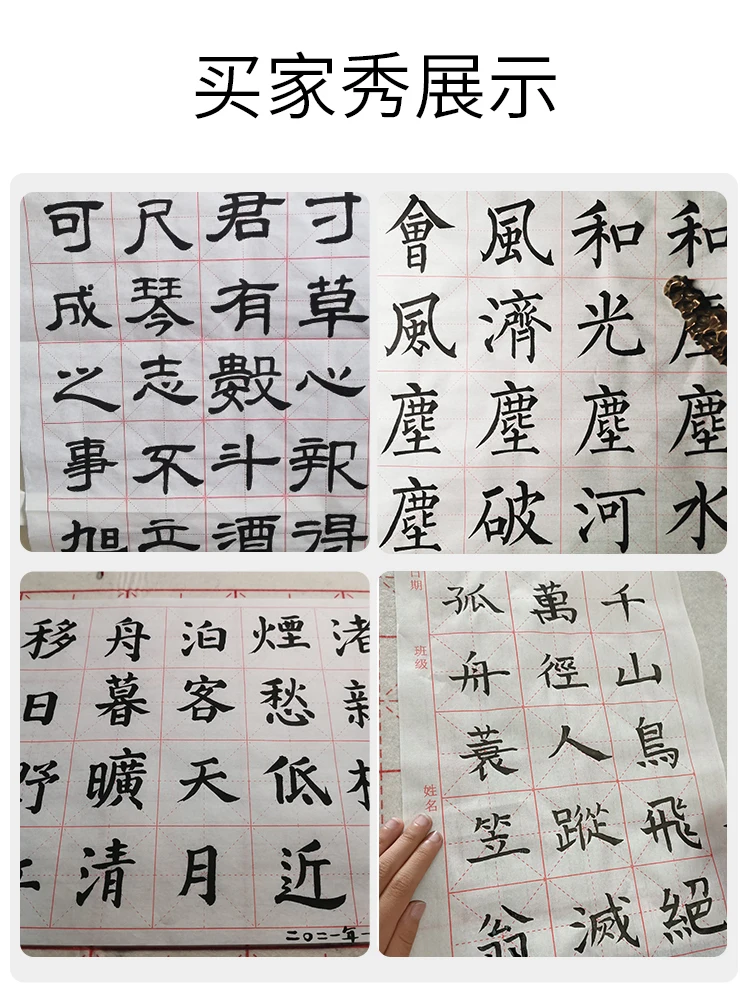 买家秀展示
寸草心報得
君有數斗酒
尺琴志不立
可成之事旭
和塵水
和光塵河
風濟塵破
會風塵塵
渚
煙愁低近
泊客天月
舟暮曠清
移日野
二〇二一年
千山鳥飛絕
萬徑人蹤滅
孤舟蓑笠翁
日期
班级
姓名